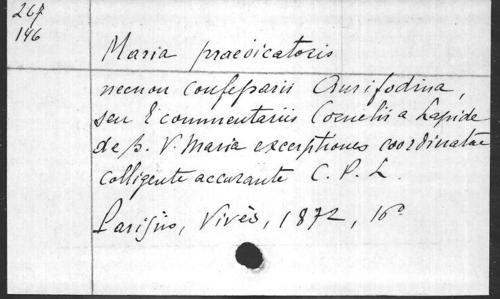 267
146
Maria praedicatoris
necnon confessarii Aurifodina,
seu E commentariis Cornelii a Lapide
de B. V. Maria excerptiones coordinatae
colligente accurante C. P. L.
Parisiis, Vivès, 1872, 16°